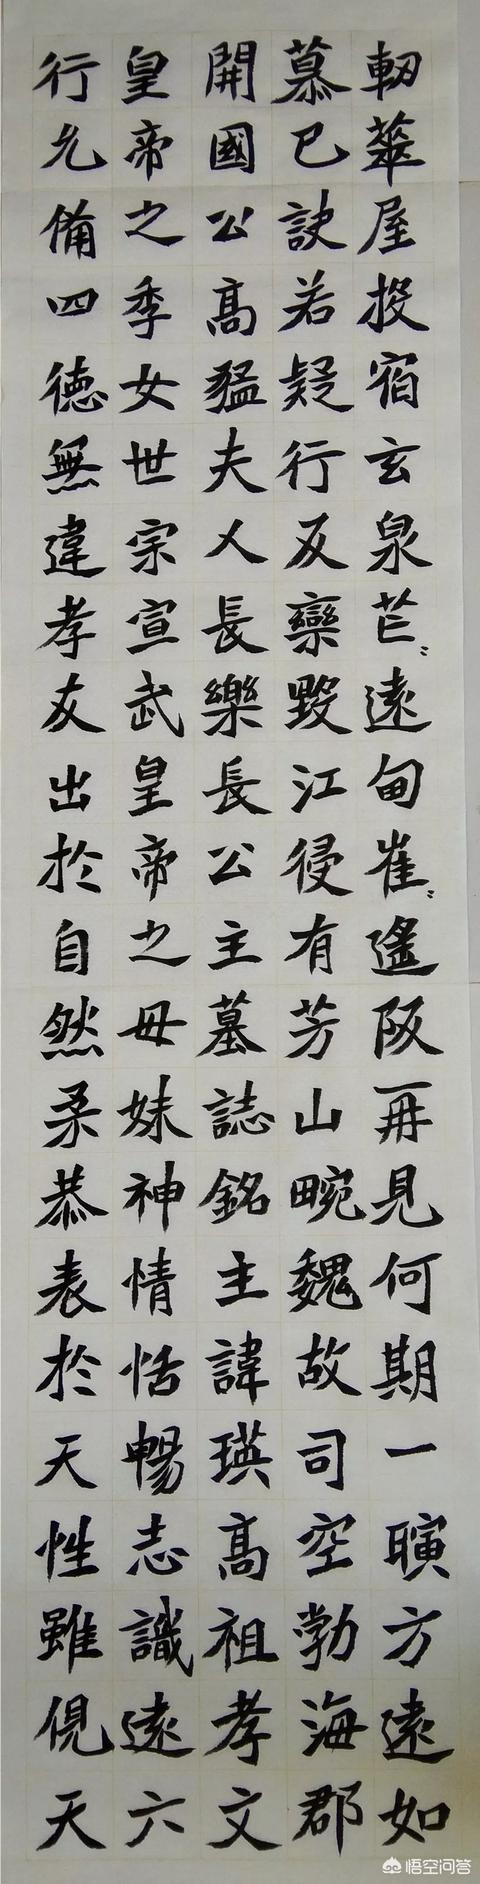 軔華屋投宿玄泉芒〻遠甸崔〻遙阪再見何期一瞚方遠如
慕已訣若疑行反欒毀江侵有芳山畹魏故司空勃海郡
開國公高猛夫人長樂長公主墓誌銘主諱瑛高祖孝文
皇帝之季女世宗宣武皇帝之母妹神情恬暢志識遠六
行允備四德無違孝友出於自然柔恭表於天性雖俔天
悟空问答